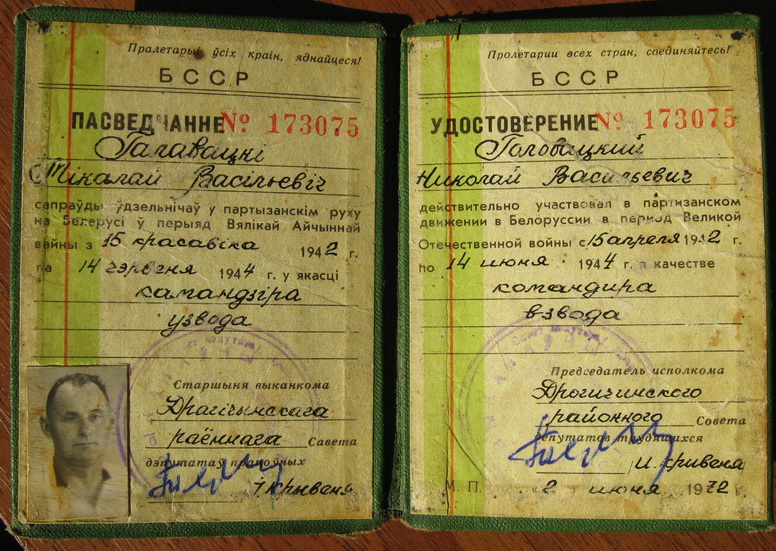 Пралетарыі ўсіх краін, яднайцеся!
БССР
ПАСВЕДЧАННЕ № 173075
Галавацкі
Мікалай Васільевіч
сапраўды ўдзельнічаў у партызанскім руху
на Беларусі ў перыяд Вялікай Айчыннай
вайны з 15 красавіка 1942 г.
па 14 чэрвеня 1944 г. у якасці
камандзіра
узвода
Старшыня выканкома
Драгічынскага
раённага Савета
дэпутатаў працоўных
І. Крывеня
Пролетарии всех стран, соединяйтесь!
БССР
УДОСТОВЕРЕНИЕ № 173075
Головацкий
Николай Васильевич
действительно участвовал в партизанском
движении в Белоруссии в период Великой
Отечественной войны с 15 апреля 1942 г.
по 14 июня 1944 г. в качестве
командира
взвода
Председатель исполкома
Дрогичинского
районного Совета
депутатов трудящихся
И. Кривеня
М. П. 2 июня 1972 г.